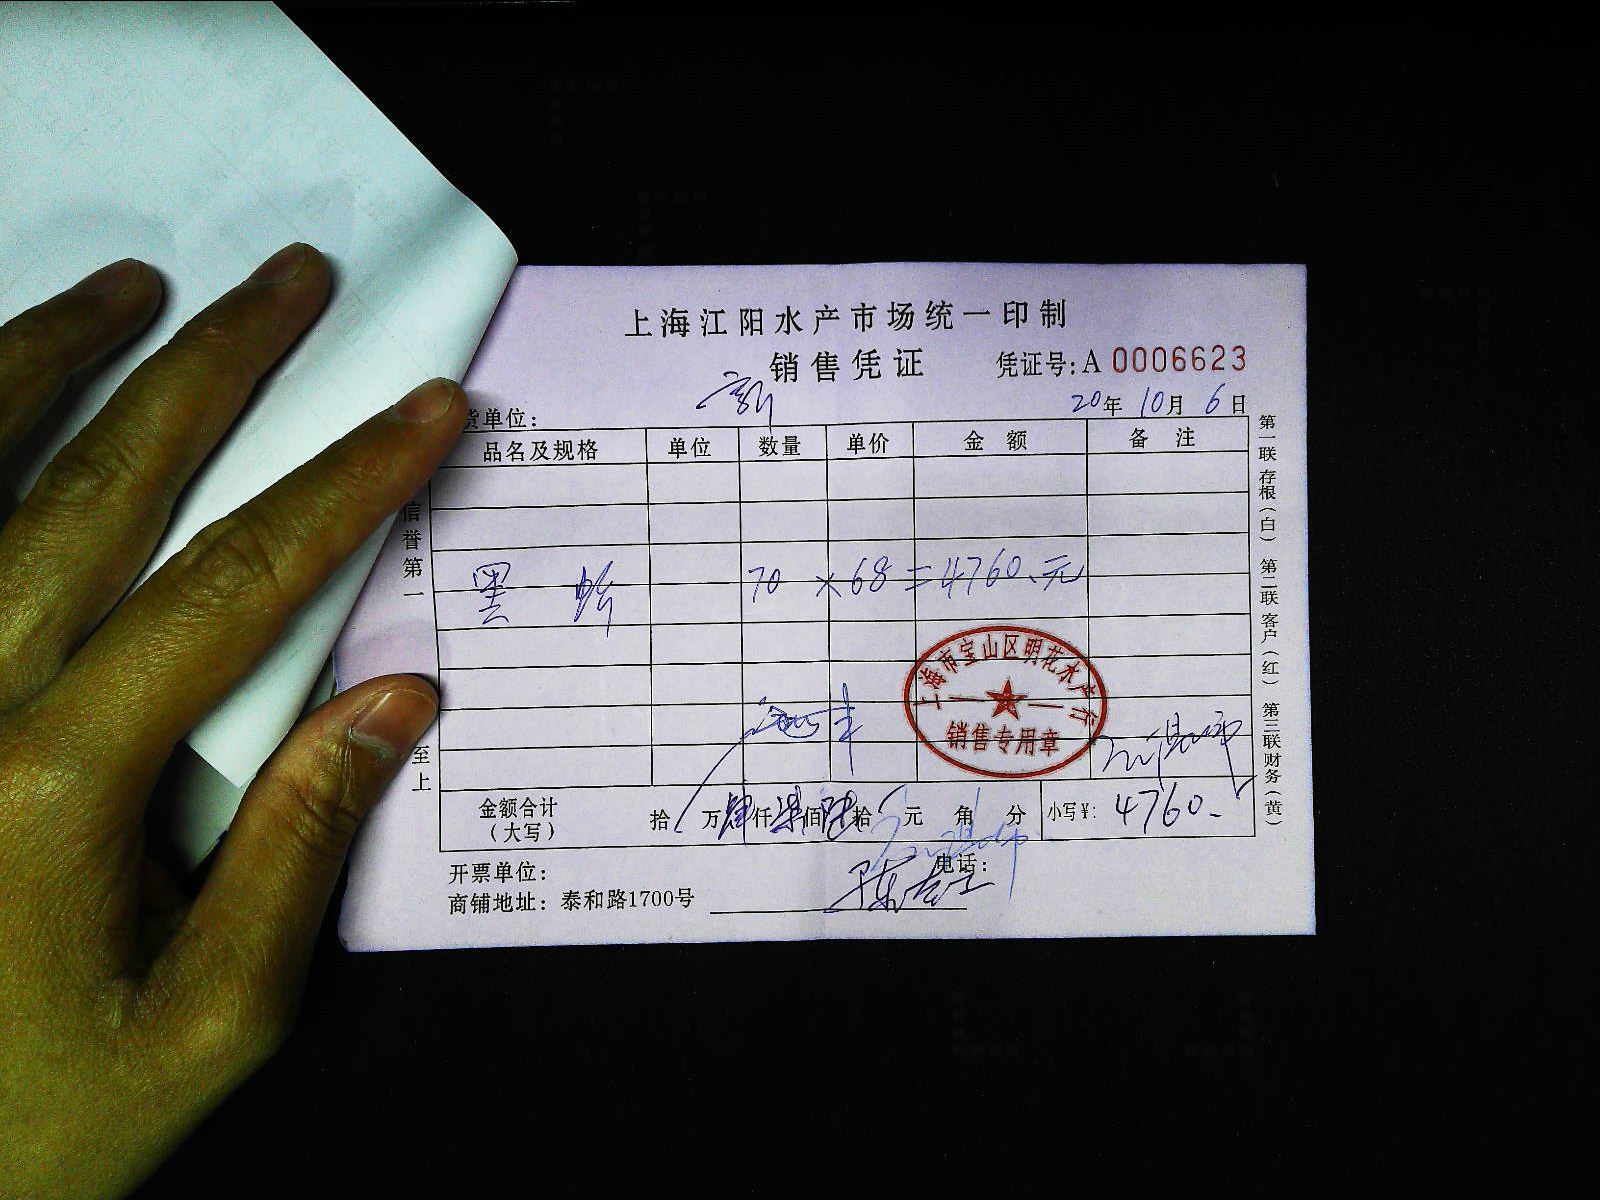 上海江阳水产市场统一印制
销售凭证 凭证号:A 0006623
货单位: 20年 10月 6日
品名及规格 单位 数量 单价 金额 备注
黑 蛤 70 × 68 = 4760.元
上海市宝山区明花水产行
销售专用章
金额合计(大写) 拾 万 肆仟 柒佰 陆拾 元 角 分 小写¥: 4760.
开票单位: 电话:
商铺地址: 泰和路1700号
信誉第一
至上
第一联存根(白) 第二联客户(红) 第三联财务(黄)